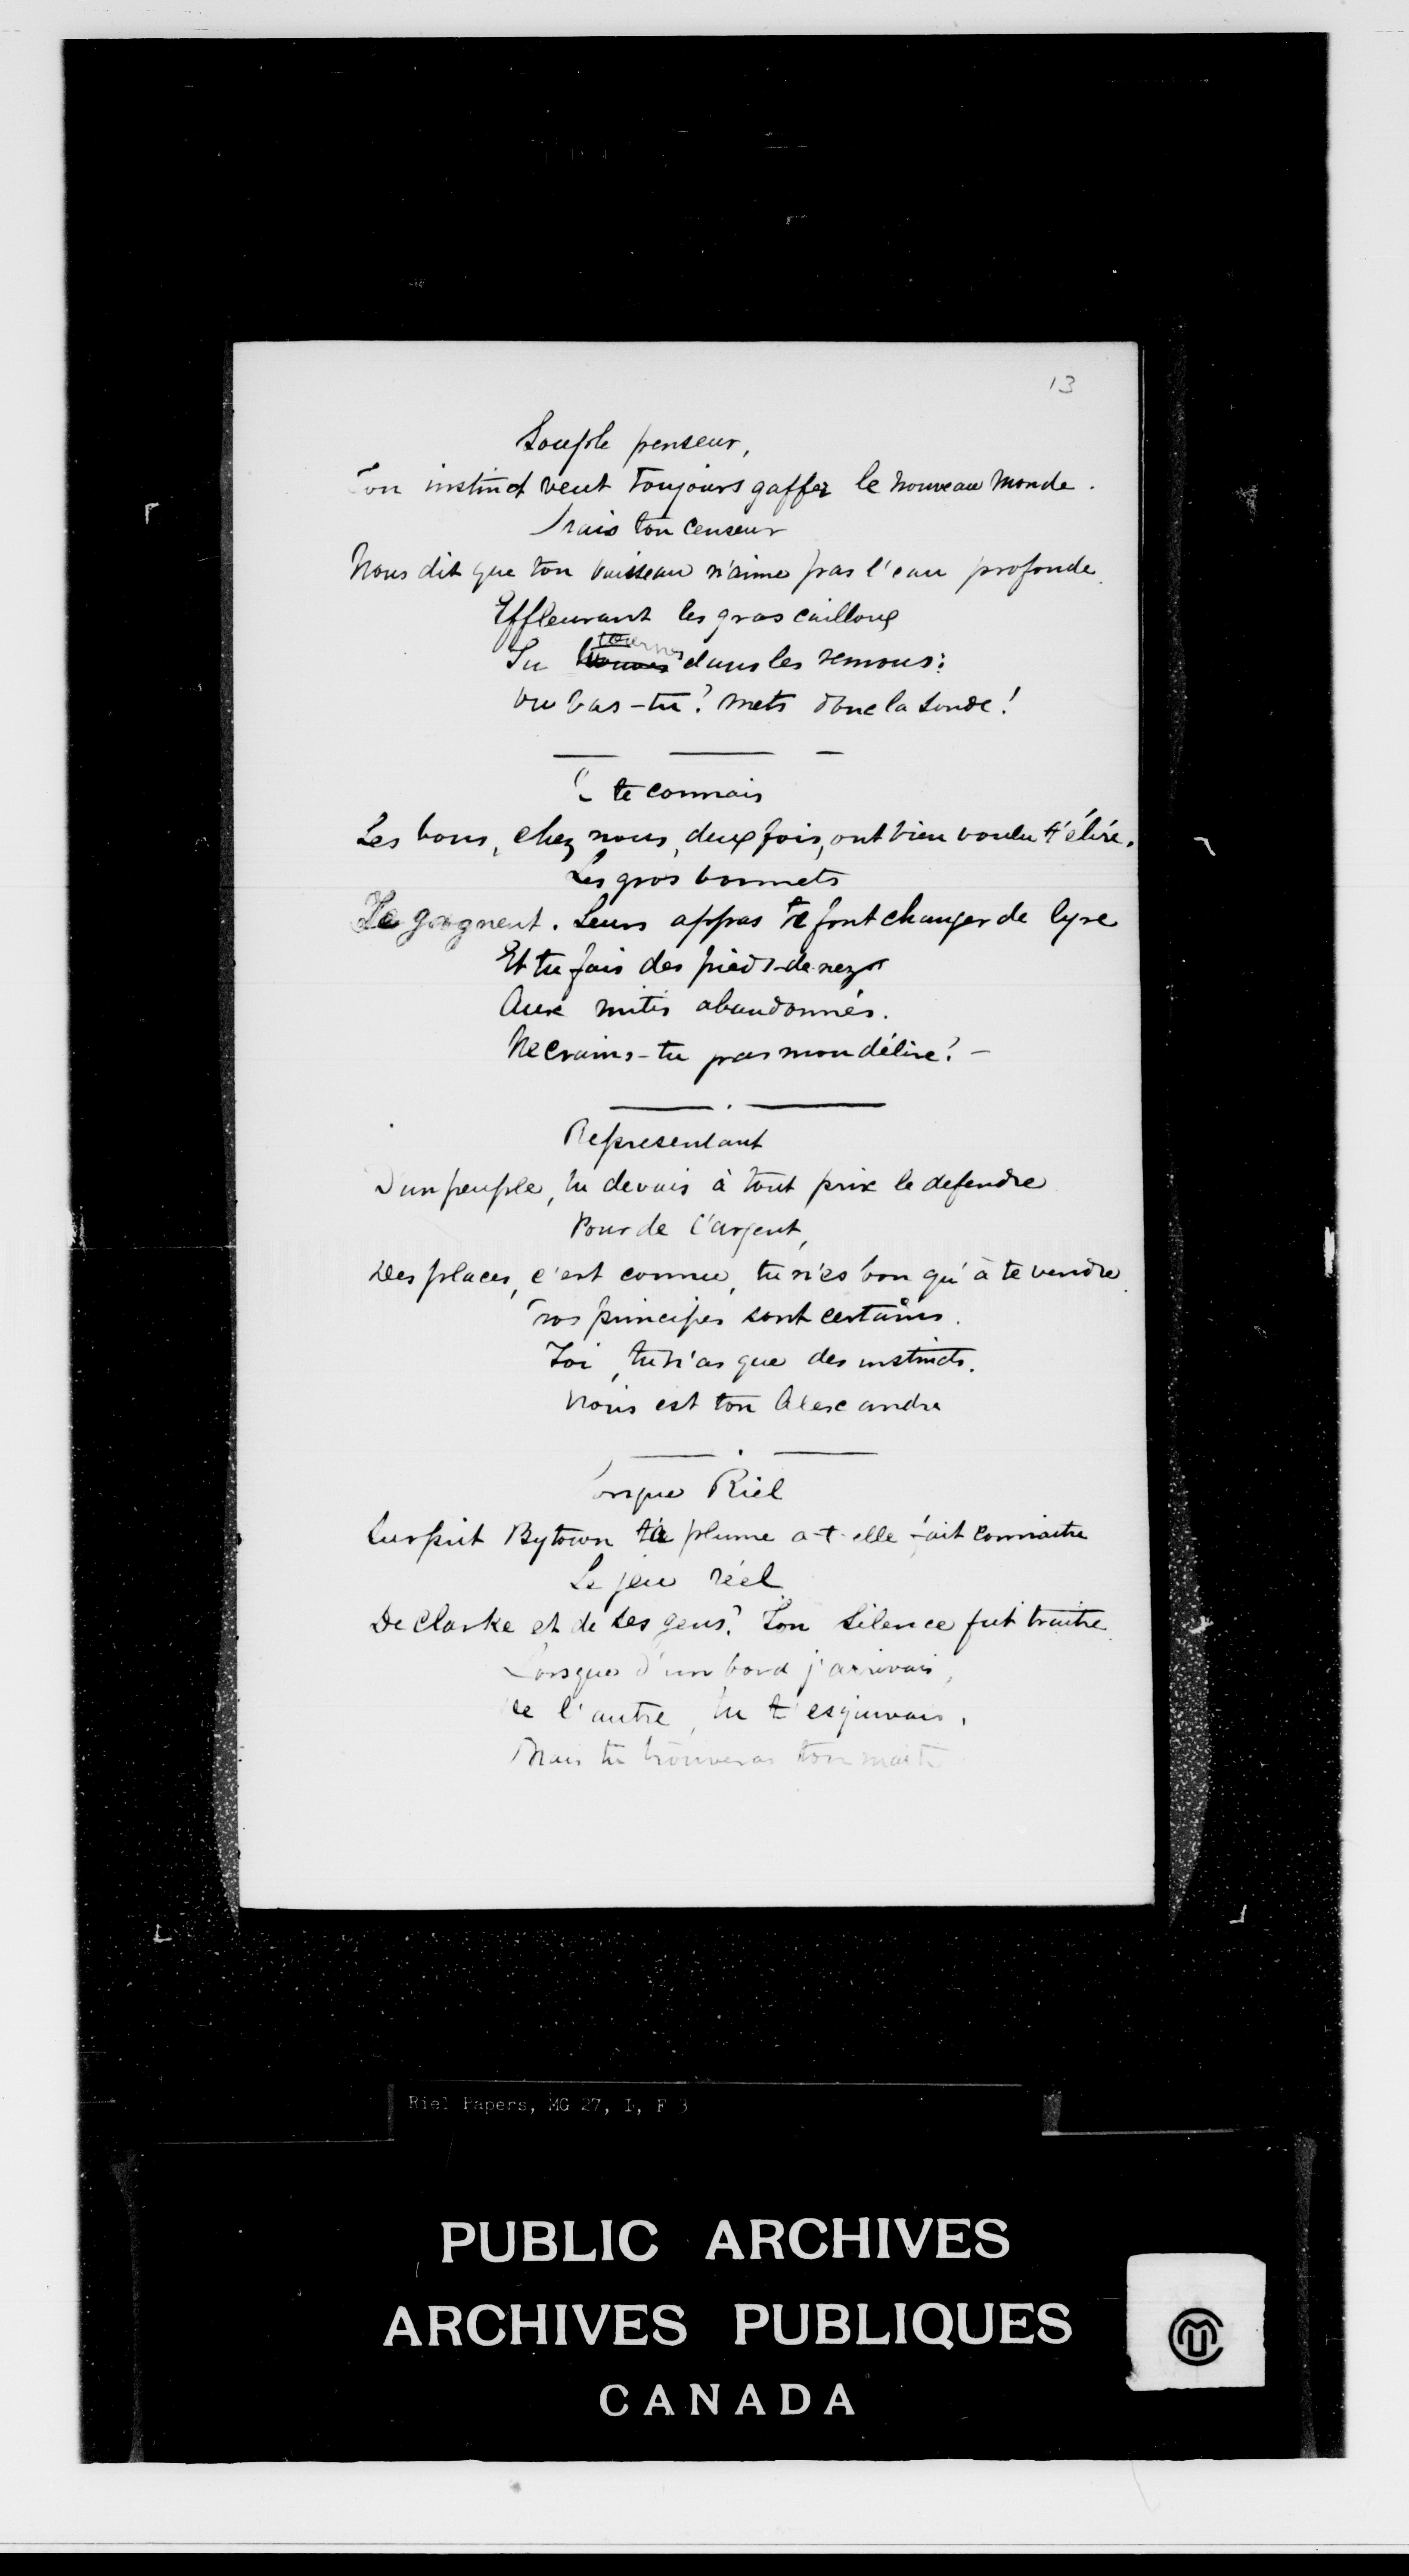 13
Souple penseur,
Ton instinct veut toujours gaffer le nouveau monde.
Mais ton censeur
Nous dit que ton vaisseau n'aime pas l'eau profonde.
Effleurant les gros cailloux
tournes
Tu dans les remous:
Où vas-tu? mets donc la sonde!
te connais
Les bons, chez nous, deux fois, ont bien voulu t'élire.
Les gros bonnets
Te gagnent. Leurs appas te font changer de lyre
Et tu fais des pieds-de-nez
Aux mitis abandonnés.
Ne crains-tu pas mon délire? -
Representant
D'un peuple, tu devais à tout prix le defendre
Pour de l'argent,
Des places, c'est connu, tu n'es bon qu'à te vendre.
Nos principes sont certains.
Toi, tu n'as que des instincts.
est ton Alexandre
Lorsque Riel
Surprit Bytown ta plume a-t-elle fait connaitre
Le jeu réel
De Clarke et de ses gens? Ton silence fut traitre.
Lorsque d'un bord j'arrivais,
De l'autre, tu t'esquivais,
Mais tu trouveras ton maitre
Riel Papers, MG 27, I, F 3
PUBLIC ARCHIVES
ARCHIVES PUBLIQUES
CANADA